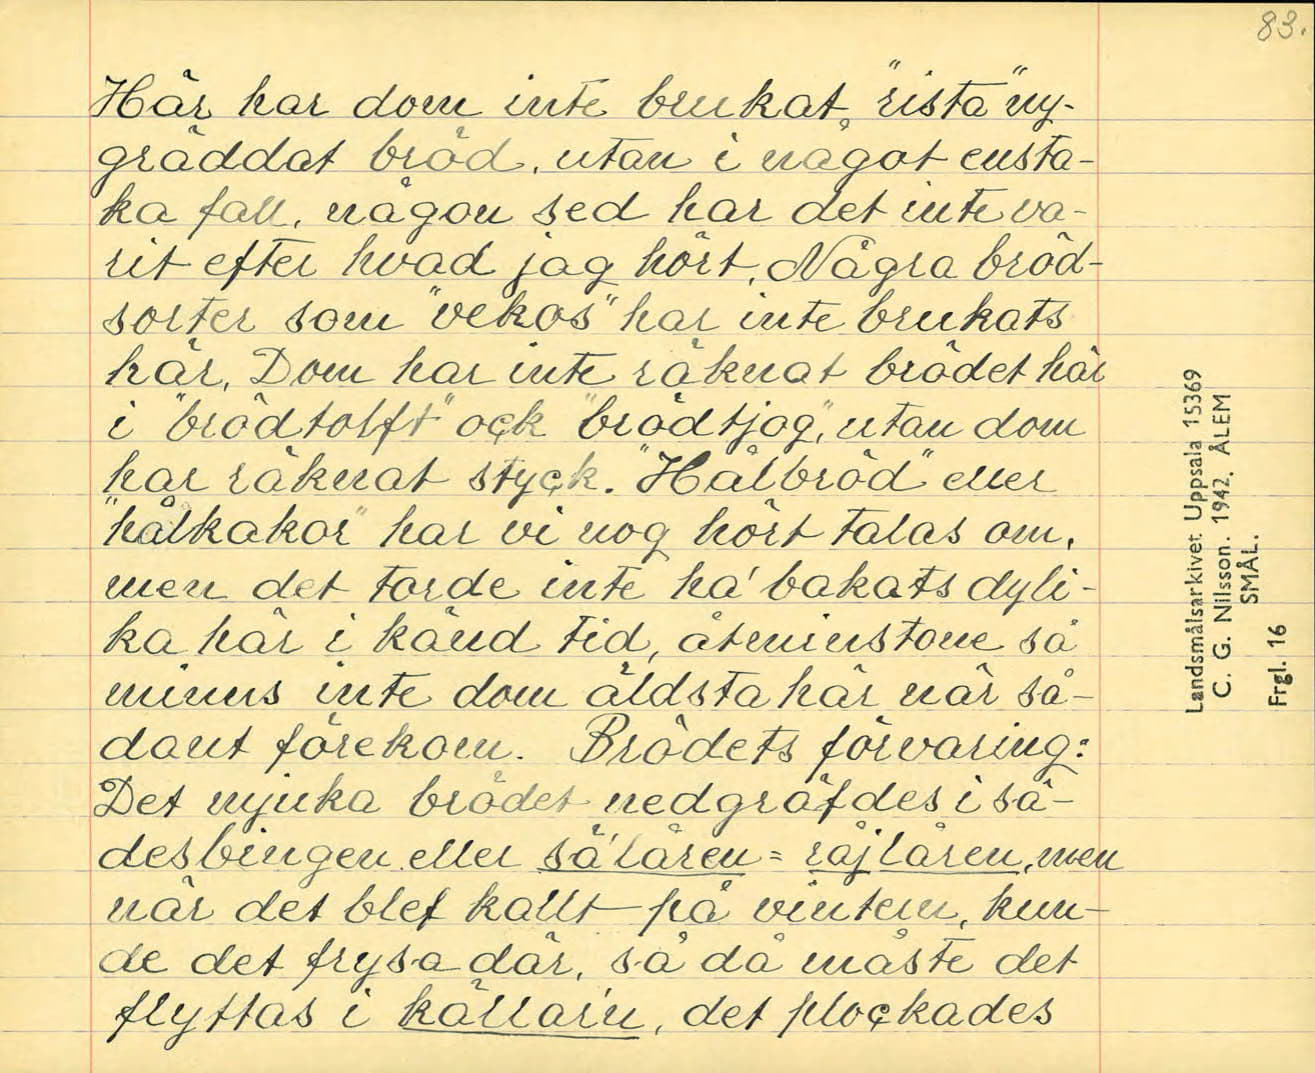 83.
Här har dom inte brukat "rista" ny-
gräddat bröd, utan i något ensta-
ka fall, någon sed har det inte va-
rit efter hvad jag hört. Några bröd-
sorter som "vekos" har inte brukats
här. Dom har inte räknat brödet här
i "brödtolft" ock "brödtjog", utan dom
har räknat styck. "Hålbröd" eller
"hålkakor" har vi nog hört talas om,
men det torde inte ha' bakats dyli-
ka här i känd tid, åtminstone så
minns inte dom äldsta här när så-
dant förekom. Brödets förvaring:
Det mjuka brödet nedgräfdes i sä-
desbingen eller sä'låren = råjlåren, men
när det blef kallt på vintern, kun-
de det frysa där, så då måste det
flyttas i källarn, det plockades
Landsmålsarkivet Uppsala 15369
C. G. Nilsson. 1942. ÅLEM
SMÅL.
Frgl. 16